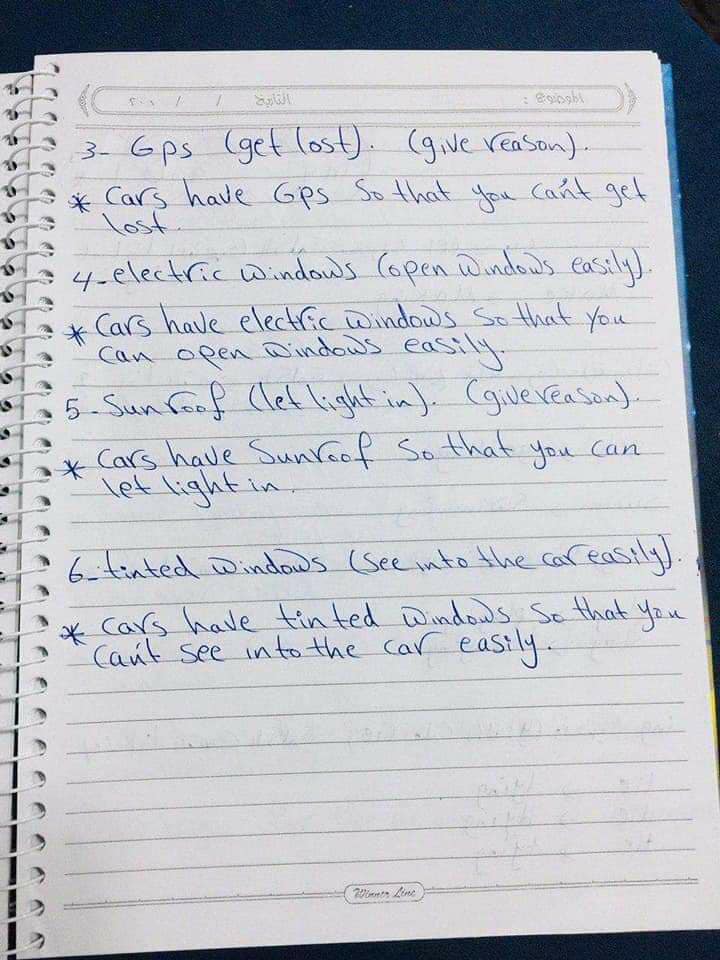 الموضوع :
التاريخ / / ٢٠٠
3- Gps (get lost). (give reason).
* Cars have Gps so that you can't get
lost.
4- electric windows (open windows easily).
* Cars have electric windows so that you
can open windows easily.
5- Sunroof (let light in). (give reason).
* Cars have Sunroof so that you can
let light in.
6- tinted windows (see into the car easily).
* Cars have tinted windows so that you
can't see into the car easily.
Winner Line